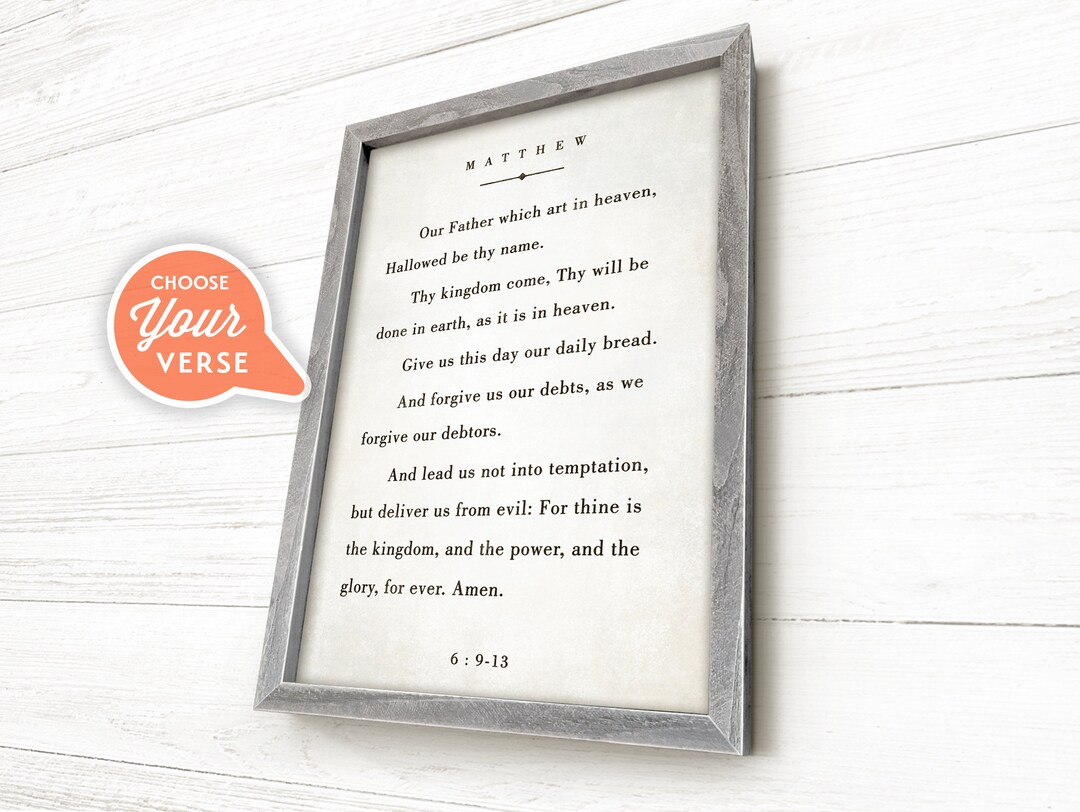 MATTHEW
Our Father which art in heaven,
Hallowed be thy name.
Thy kingdom come, Thy will be
done in earth, as it is in heaven.
Give us this day our daily bread.
And forgive us our debts, as we
forgive our debtors.
And lead us not into temptation,
but deliver us from evil: For thine is
the kingdom, and the power, and the
glory, for ever. Amen.
6 : 9-13
CHOOSE
Your
VERSE